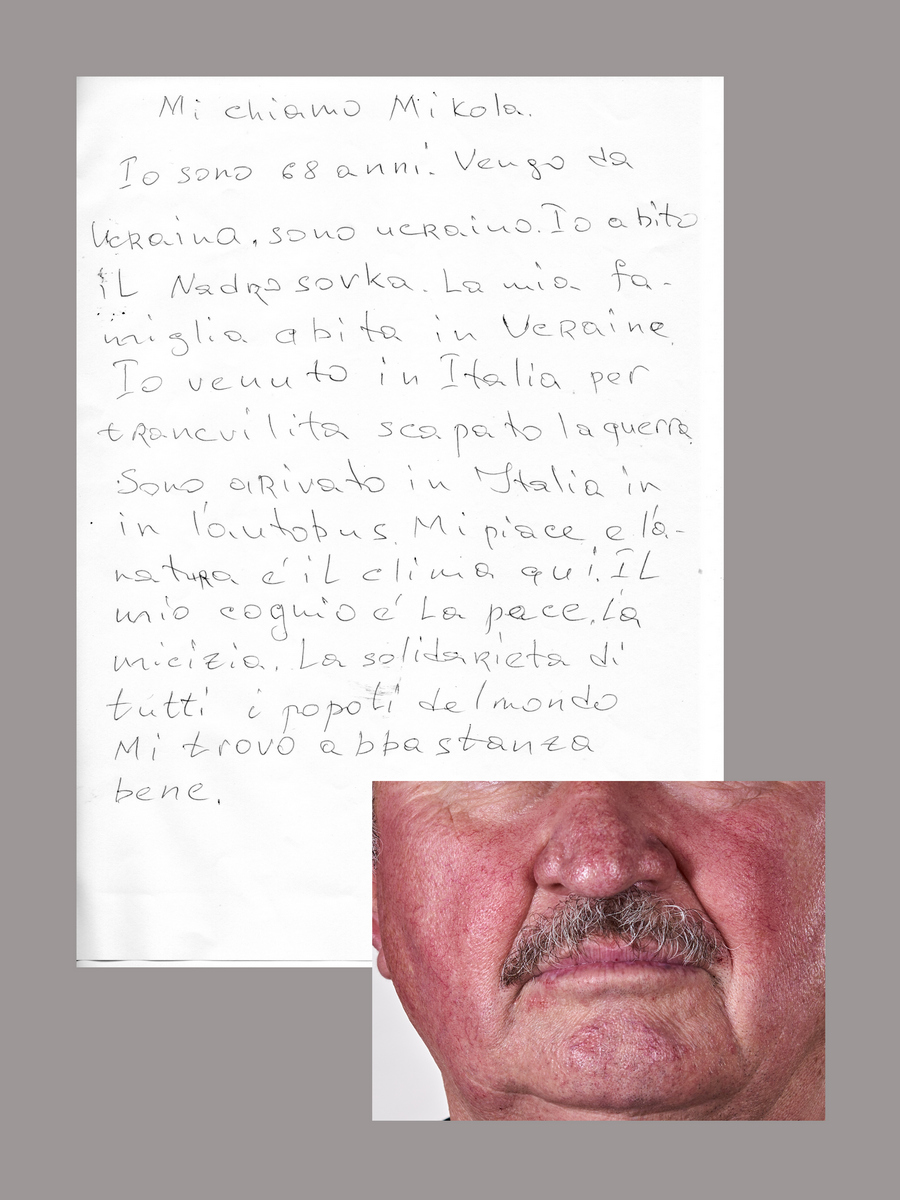 Mi chiamo Mikola.
Io sono 68 anni. Vengo da
Ucraina, sono ucraino. Io abito
il Nadrosovka. La mia fa-
miglia abita in Ucraine
Io venuto in Italia per
trancvilita scapato la guerra
Sono arivato in Italia in
in l'autobus. Mi piace e la-
natura e' il clima qui. IL
mio cognio e' La pace, La
micizia. La solidarieta di
tutti i popoti del mondo
Mi trovo abbastanza
bene.